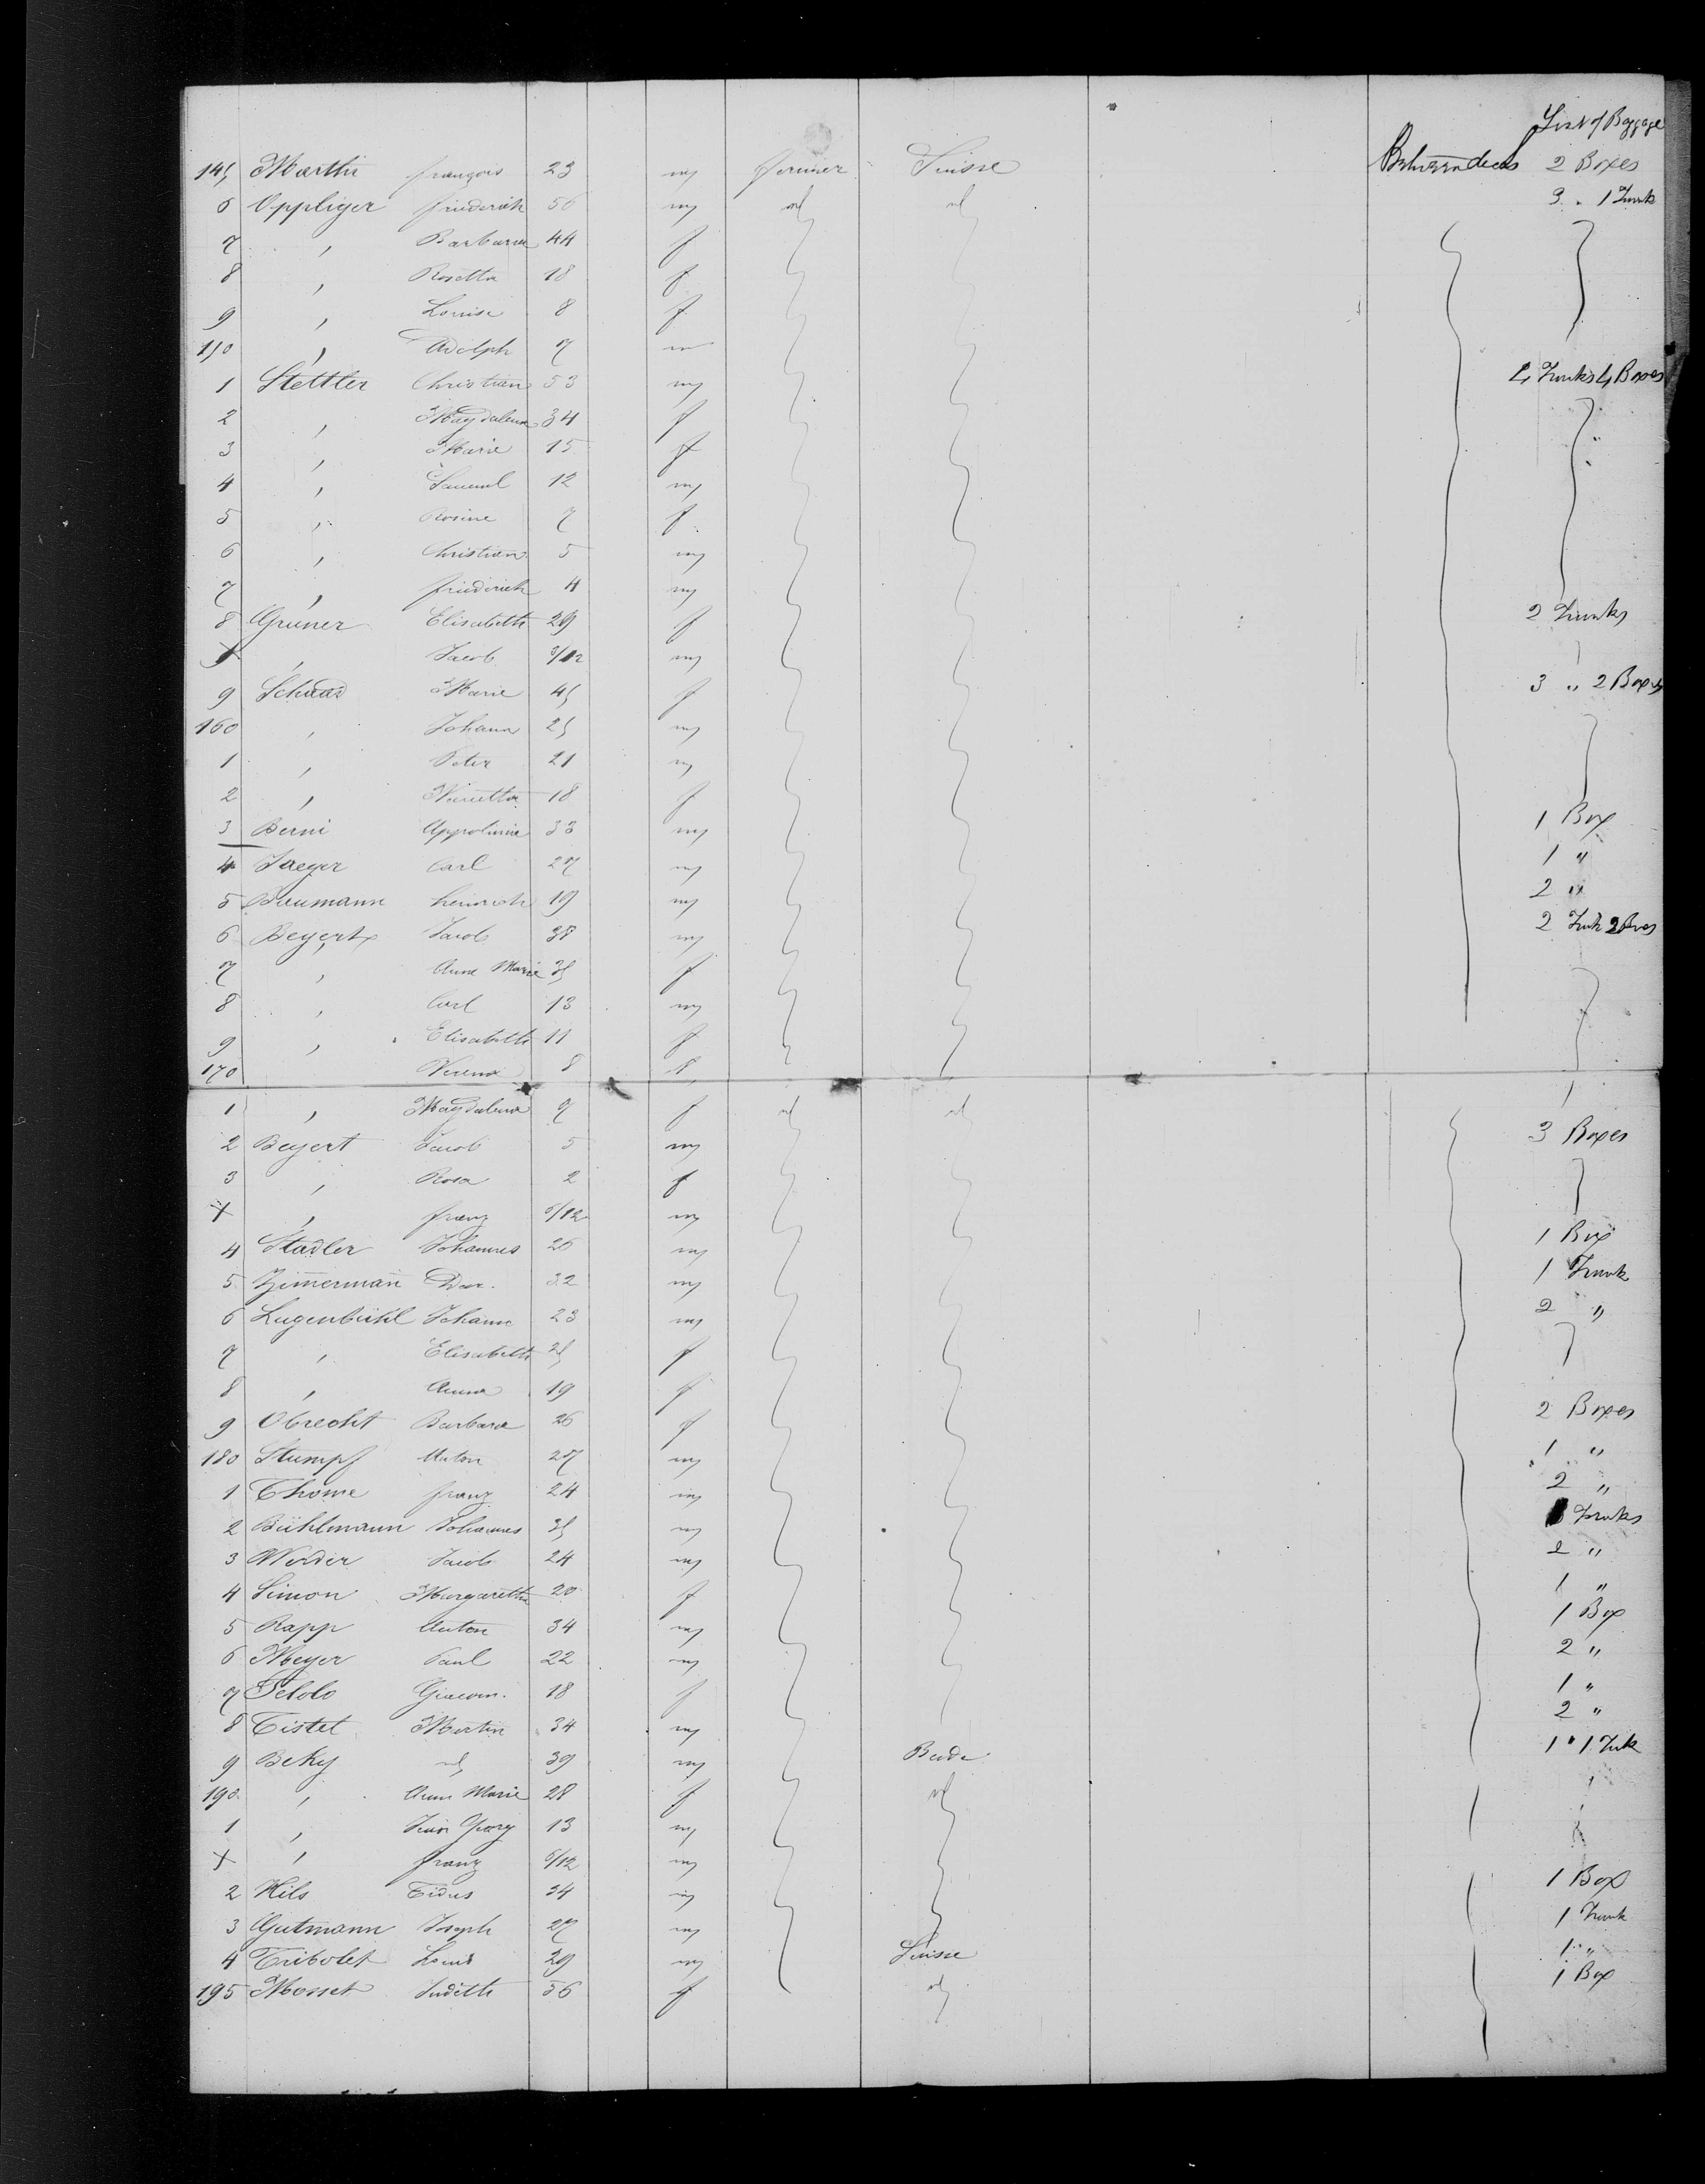 List of Baggage
145 Marthi françois 23 m fermier Suisse Betweendecks 2 Boxes
6 Oppliger friederich 56 m id id 3 " 1 Trunk
7 " Barbara 44 f
8 " Rosetta 18 f
9 " Louise 8 f
150 " Adolph 7 m
1 Stettler Christian 53 m 4 Trunks 4 Boxes
2 " Magdalena 34 f
3 " Marie 15 f
4 " Samuel 12 m
5 " Rosine 7 f
6 " Christian 5 m
7 " friederich 4 m
8 Gruner Elisabeth 29 f 2 Trunks
X " Jacob 3/12 m
9 Schaad Marie 45 f 3 " 2 Boxes
160 " Johann 25 m
1 " Peter 21 m
2 " Nanetta 18 f
3 Berni Appolinia 33 m 1 Box
4 Jaeger Carl 27 m 1 "
5 Baumann heinrich 19 m 2 "
6 Beyert Jacob 38 m 2 Trnk 2 Bxes
7 " Anna Marie 35 f
8 " Carl 13 m
9 " Elisabeth 11 f
170 Verena 8 f
1 " Magdalena 7 f id id
2 Beyert Jacob 5 m 3 Boxes
3 " Rosa 2 f
X " franz 6/12 m
4 Stadler Johannes 26 m 1 Box
5 Zimerman 32 m 1 Trunk
6 Lugenbühl Johann 23 m 2 "
7 " Elisabeth 25 f
8 " Anna 19 f
9 Obrecht Barbara 26 f 2 Boxes
180 Stumpf Anton 27 m 1 "
1 Thome franz 24 m 2 "
2 Bühlmann Johannes 35 m Trunks
3 Werder Jacob 24 m 2 "
4 Simon Margaretha 20 f 1 "
5 Rapp Anton 34 m 1 Box
6 Meyer Paul 22 m 2 "
7 Pelolo Giacom. 18 f 1 "
8 Tistel Martin 34 m 2 "
9 Beky id 39 m Bade 1 " 1 Trnk
190 " Anna Marie 28 f id
1 " Jean Georg 13 m
X " franz 6/12 m
2 Hils Fidus 34 m 1 Box
3 Gutmann Joseph 27 m 1 Trunk
4 Tribolet Louis 29 m Suisse 1 "
195 Mosset Judith 56 f id 1 Box